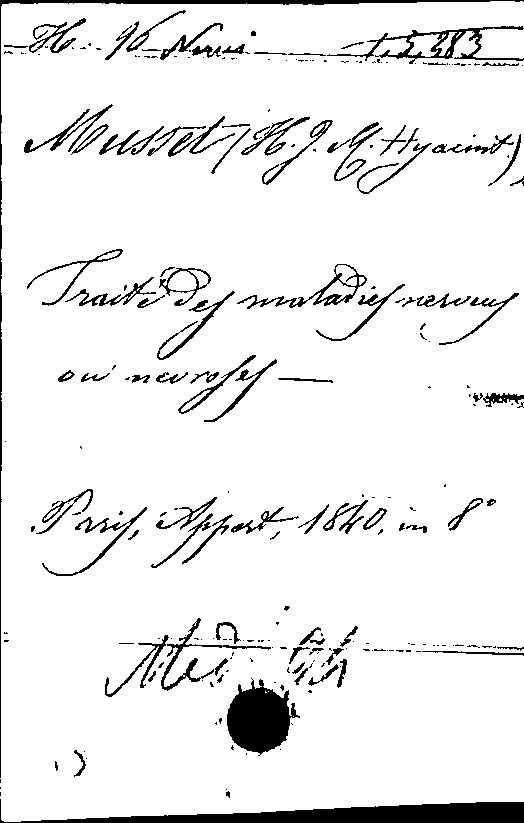 H. 96 Nervi 1,5,283
Musset (H. J. M. Hyacint.)
Traité des maladies nerveus
ou nevroses —
Paris, Appert, 1840, in 8°
Med